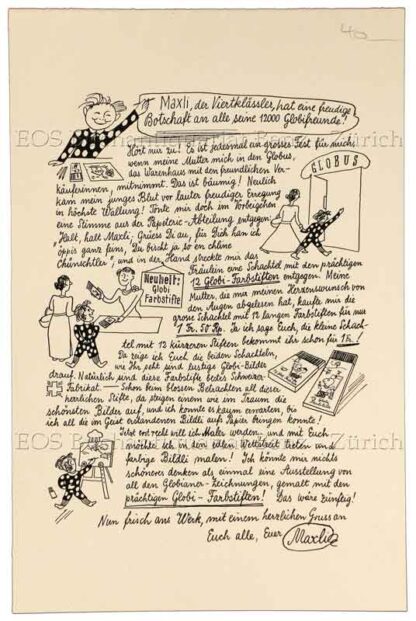 40
Maxli, der Viertklässler, hat eine freudige
Botschaft an alle seine 12000 Globifreunde!
EOS Buchantiquariat Benz Zürich
Hört nur zu! Es ist jedesmal ein grosses Fest für mich,
wenn meine Mutter mich in den Globus,
das Warenhaus mit den freundlichen Ver-
käuferinnen, mitnimmt. Das ist bäumig! Neulich
kam mein junges Blut vor lauter freudiger Erregung
in höchste Wallung! Tönte mir doch im Vorbeigehen
eine Stimme aus der Papeterie-Abteilung entgegen:
"Halt, halt Maxli. Grüess Di au, für Dich han ich
öppis ganz feins, Du bischt ja so en chline
Chünschtler", und in der Hand streckte mir das
GLOBUS
Fräulein eine Schachtel mit den prächtigen
12 Globi-Farbstiften entgegen. Meine
Mutter, die mir meinen Herzenswunsch von
den Augen abgelesen hat, kaufte mir die
grosse Schachtel mit 12 langen Farbstiften für nur
1 Fr. 50 Rp. Ja ich sage Euch, die kleine Schach-
tel mit 12 kürzeren Stiften bekommt ihr schon für 1 Fr.
Neuheit:
Globi
Farbstifte
Da zeige ich Euch die beiden Schachteln,
wie Ihr seht sind lustige Globi-Bilder
drauf. Natürlich sind diese Farbstifte bestes Schweizer-
Fabrikat. Schon beim blossen Betrachten all dieser
herrlichen Stifte, da steigen einem wie im Traum die
schönsten Bilder auf, und ich konnte es kaum erwarten, bis
ich all die im Geist erstandenen Bildli aufs Papier bringen konnte!
EOS Buchantiquariat Benz Zürich
Jetzt erst recht will ich Maler werden und mit Euch
möchte ich in den edlen Wettstreit treten und
farbige Bildli malen! Ich könnte mir nichts
schöneres denken als einmal eine Ausstellung von
all den Globianer-Zeichnungen, gemalt mit den
prächtigen Globi-Farbstiften! Das wäre zünftig!
Nun frisch ans Werk, mit einem herzlichen Gruss an
Euch alle, Euer Maxli